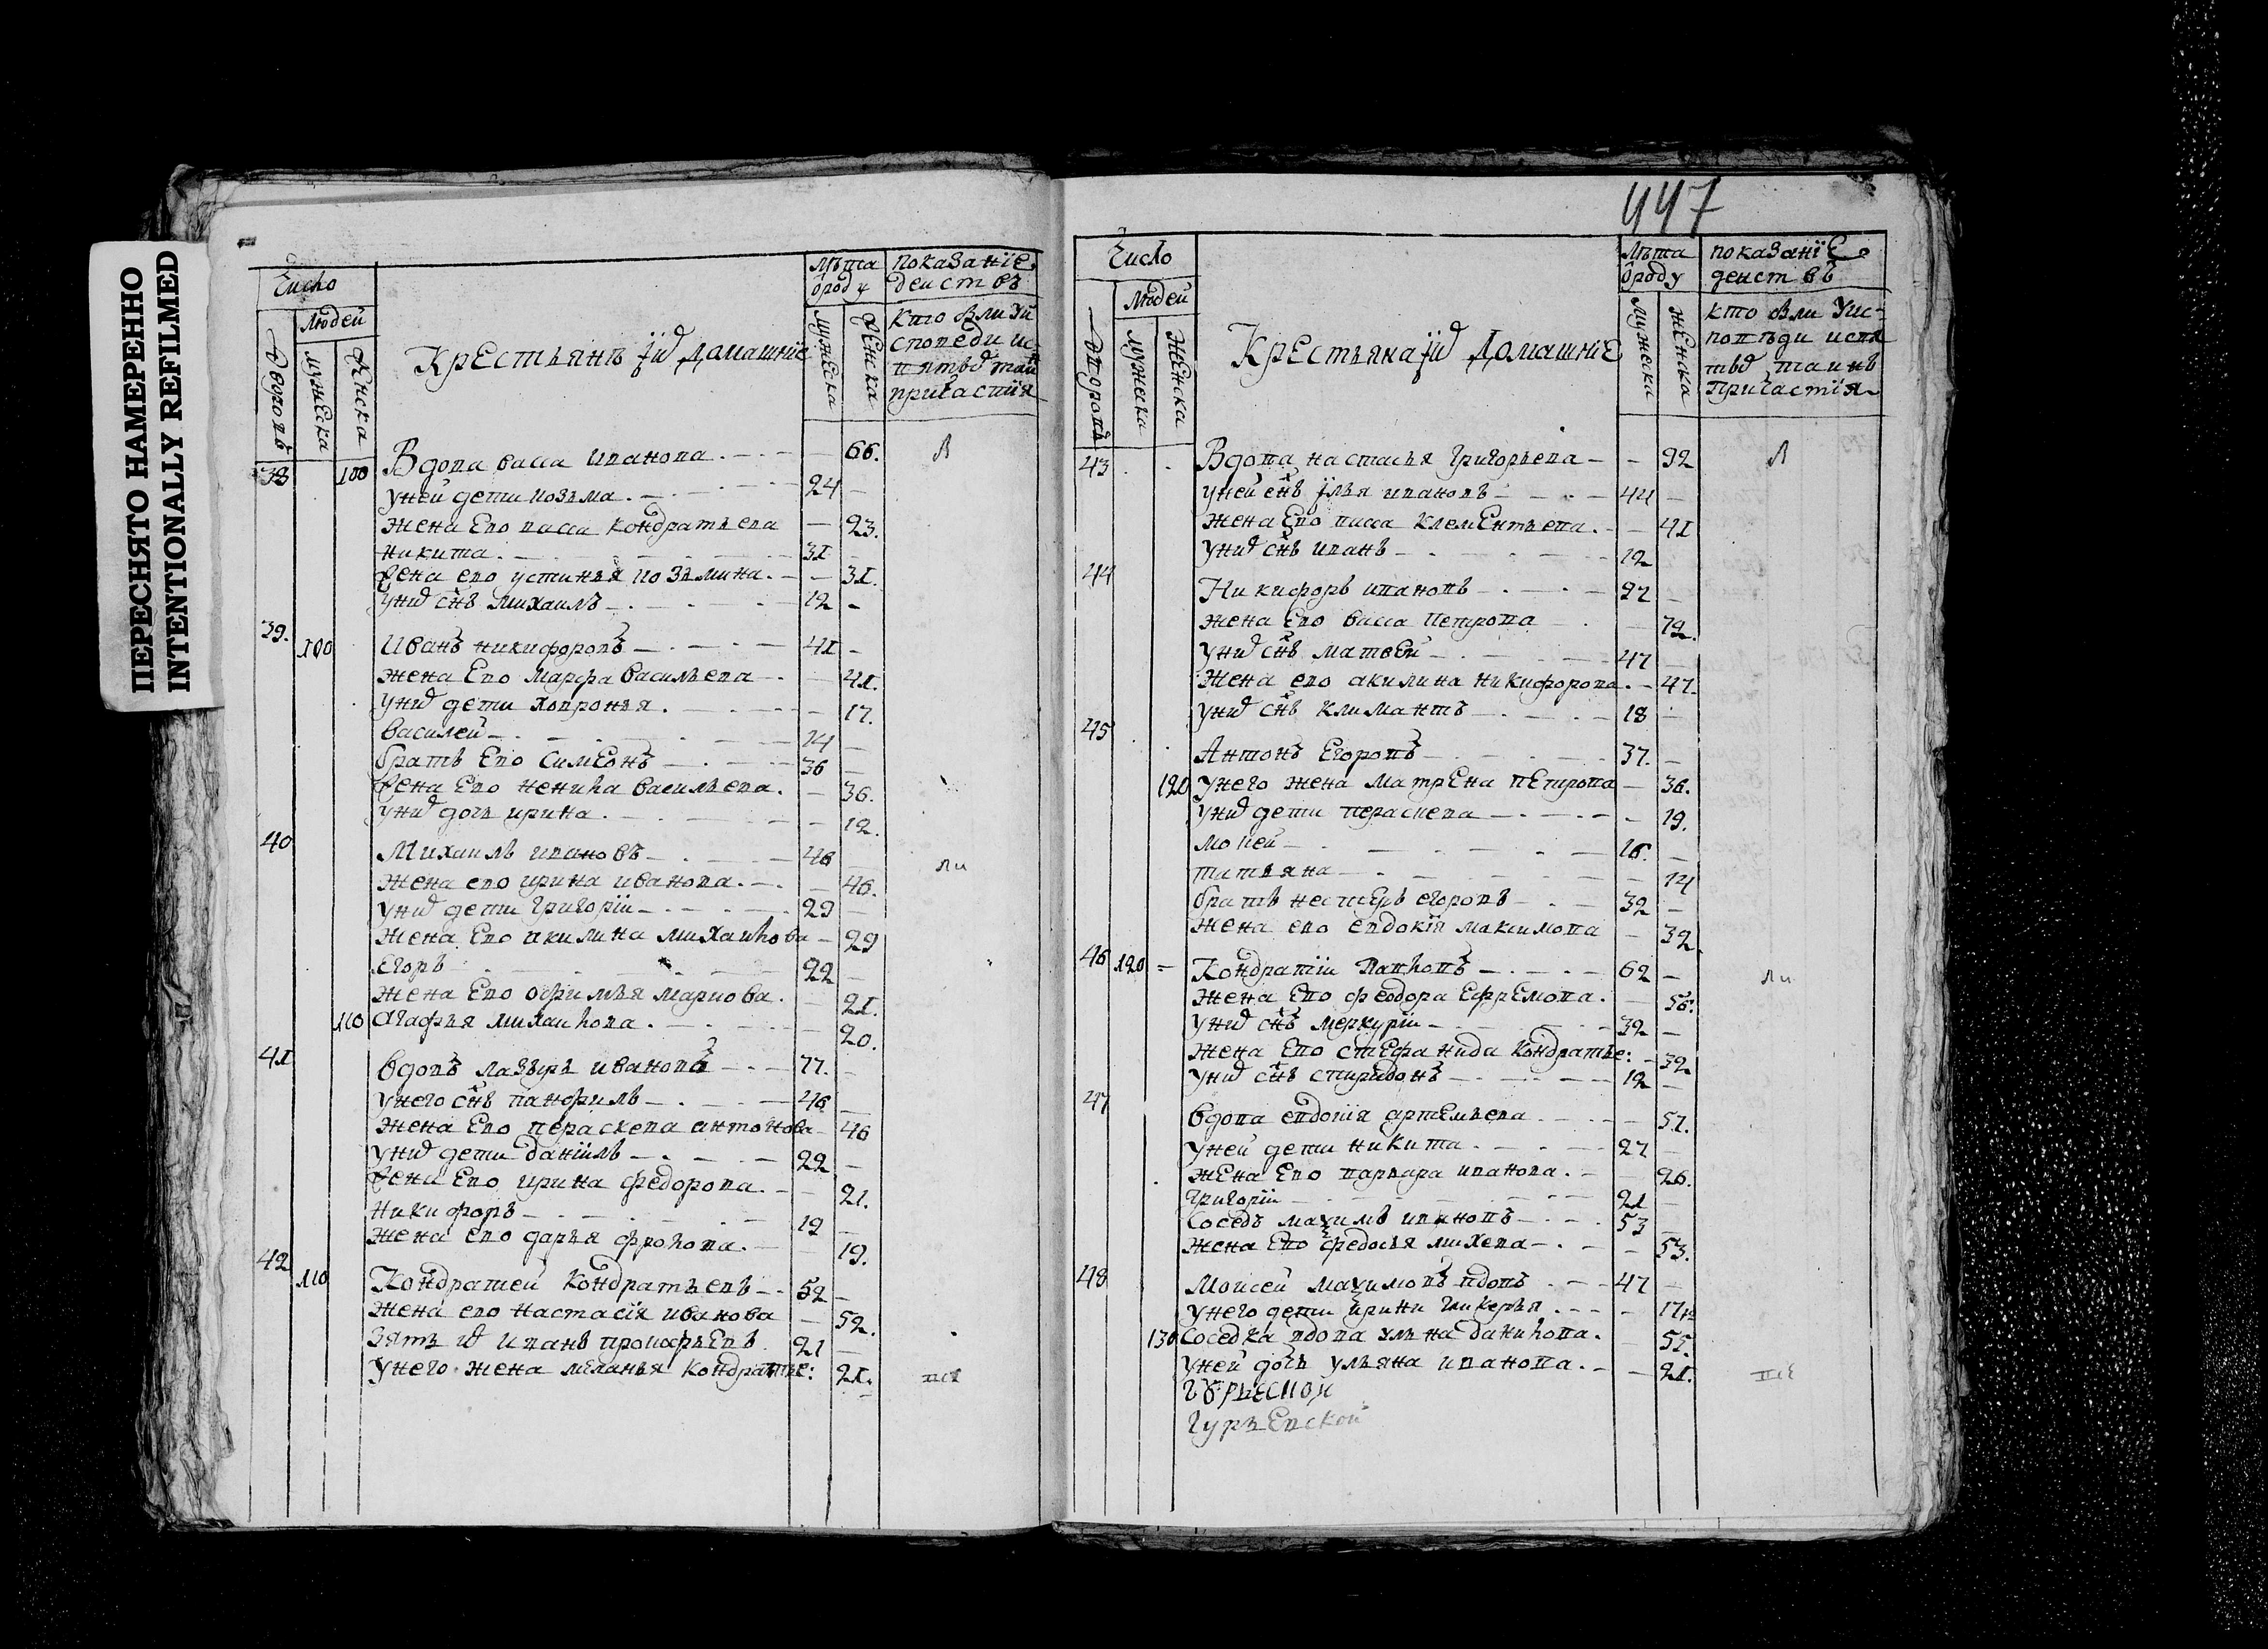 ПЕРЕСНЯТО НАМЕРЕННО
INTENTIONALLY REFILMED
Число
Людей
Дворовъ
мужеска
женска
Крестьянъ їихъ домашние
Лѣта
ѿроду
мужеска
женска
показанїе
деиствъ
Кто былиУи
споведи и с
причастїя
38 100 Вдова васса иванова 66.
уней дети козьма 24
жена Ево васса кондратьева 23.
никита 31
жена ево устинья козьмина 31.
уних снъ михаилъ 12
39. 100 Иванъ никифоровъ 41
жена Ево марфа васильева 41.
уних дети ховронья 17.
василей 14
братъ Ево симеонъ 36
жена Ево ненила васильева 36.
уних дочь ирина 12.
40 Михаилъ ивановъ 46
жена ево ирина иванова 46.
уних дети григорїи 29
жена Ево акилина михаилова 29
Егоръ 22
жена Ево офимья маркова 21.
110 Агафья михаилова 20.
41 вдовъ лазырь ивановъ 77.
унего снъ панфилъ 46
жена Ево пераскева антонова 46
уних дети данїилъ 22
жена Ево ирина федорова 21.
Никифоръ 19
жена ево дарья фролова 19.
42 110 Кондратей кондратьевъ 52
жена ево настасїя иванова 52.
зять их иванъ прокофьевъ 21
унего жена меланья кондратье: 21.
447
Число
Людей
дворовъ
мужеска
женска
Крестьяна їих домашние
Лѣта
ѿроду
мужеска
женска
показанїе
деиствъ
кто были Уис
поведи и свя
тых таинъ
Причастїя
43 Вдова настасья григорьева 92
уней снъ їлья ивановъ 44
жена Ево васса клементьева 41
уних снъ иванъ 12
44 Никифоръ ивановъ 92
жена Ево васса петрова 72.
уних снъ матвей 47
жена ево акилина никифорова 47.
уних снъ климантъ 18
45 Антонъ Егоровъ 37.
120 унего жена матрена петрова 36.
уних дети пераскева 19.
мокей 16.
татьяна 14
братъ нестеръ егоровъ 32
жена ево евдокїя максимова 32
46 120 Кондратїи павловъ 62
жена Ево феодора ефремова 56.
уних снъ меркурїи 32
жена Ево стефанида кондратье: 32
уних снъ спиридонъ 12
47 вдова евдокїя артемьева 51.
уней дети никита 27
жена Ево варвара иванова 26.
григорїи 21
соседъ маѯимъ ивановъ 53
жена Ево федосья михева 53.
48 Моисей маѯимовъ вдовъ 47
унего дети ирина гликерья 17
130 Соседка вдова ульяна данилова 55.
уней дочь ульяна иванова 21.
гурьевской